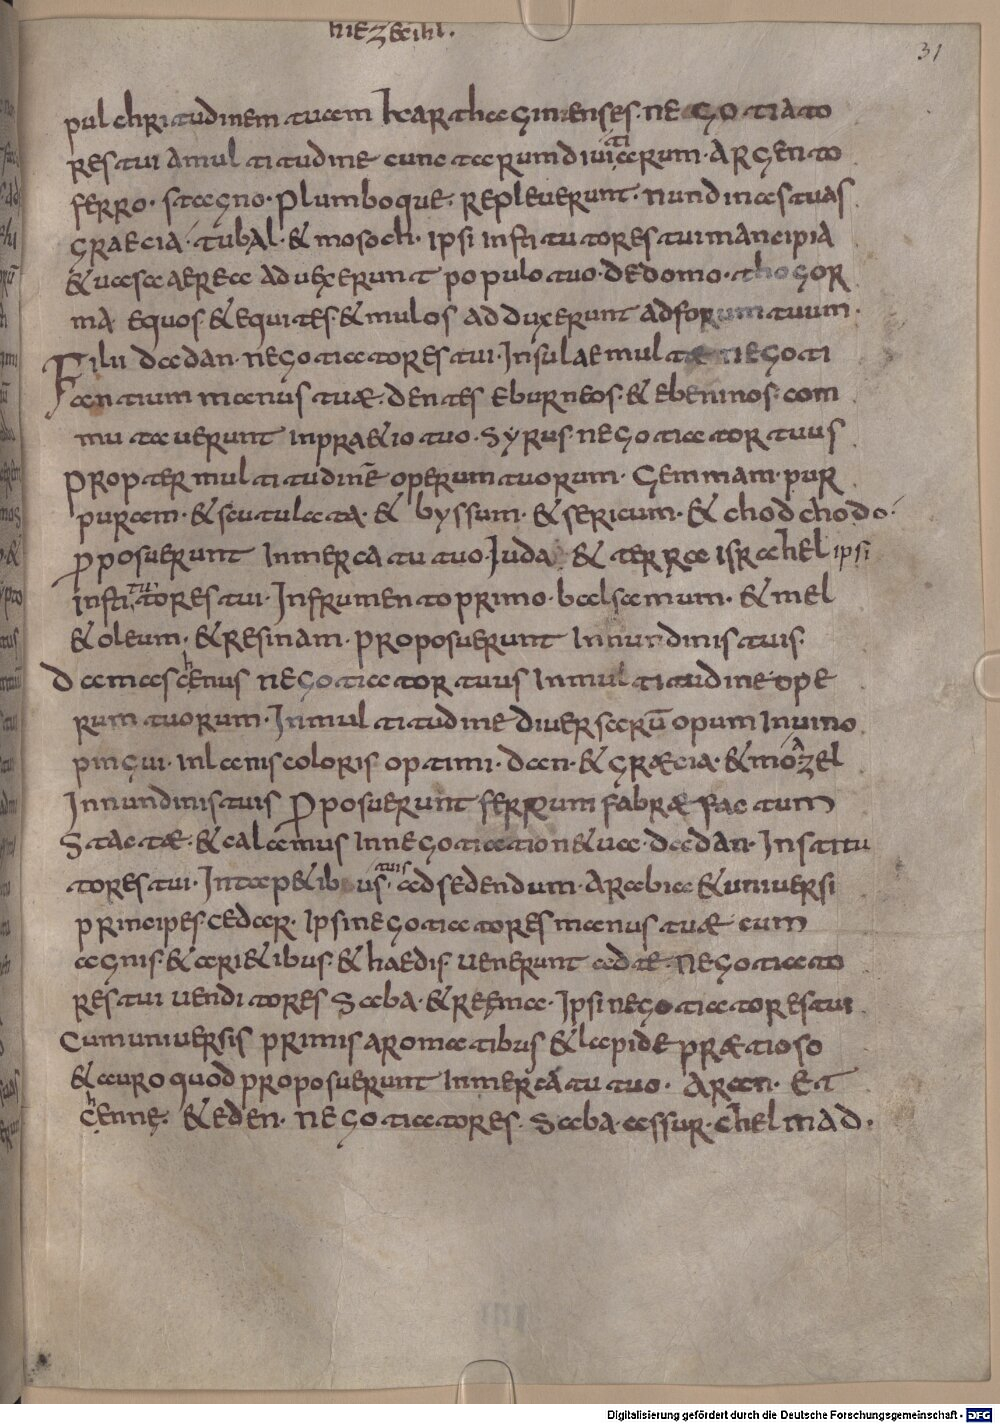 hiezecihl.
31
pulchritudinem tuam karthaginenses. negotiato
res tui amultitudine cunctarum diuitiarum. argento
ferro. stagno. plumboque. repleuerunt. nundinas tuas
graecia. tubal. & mosoch. ipsi institutores tui mancipia
& uasa aerea aduexerunt populo tuo. dedomo. thogor
ma equos. & equites. & mulos adduxerunt adforum tuum.
Filii dadan. negotiatores tui. Insulae multæ negoti
antium manus tuæ. dentes eburneos. & ebeninos. com
mutauerunt inpra&io tuo. Syrus. negotiator tuus
propter multitudinē operum tuorum. Gemmam. pur
puram. & scutulata. & byssum. & sericum. & chodchodo.
pposuerunt inmercatu tuo. Iuda & terra israhel ipsi
institutores tui. Infrumento primo. balsamum. & mel
& oleum. & resinam. proposuerunt innundinis tuis.
Damaschenus negotiator tuus inmultitudine ope
rum tuorum. Inmultitudine diuersarū opum inuino
pingui. inlanis coloris optimi. dan. & græcia. & mozel
Innundinis tuis pposuerunt ferrum fabræ factum
Stactæ. & calamus innegotiation& ua. dadan. Institu
tores tui. Intap&ibus tuis. adsedendum. Arabia & uniuersi
principes cedar. ipsi negotiatores manus tuæ cum
agnis. & ari&ibus. & haedis. uenerunt adte. Negotiato
res tui uenditores Saba. & reema. Ipsi negotiatores tui
Cum uniuersis primis aromatibus & lapide prætioso
& auro quod proposuerunt inmercatu tuo. Aran. Et
chenne. & eden. negotiatores. Saba. assur. chelmad.
Digitalisierung gefördert durch die Deutsche Forschungsgemeinschaft - DFG